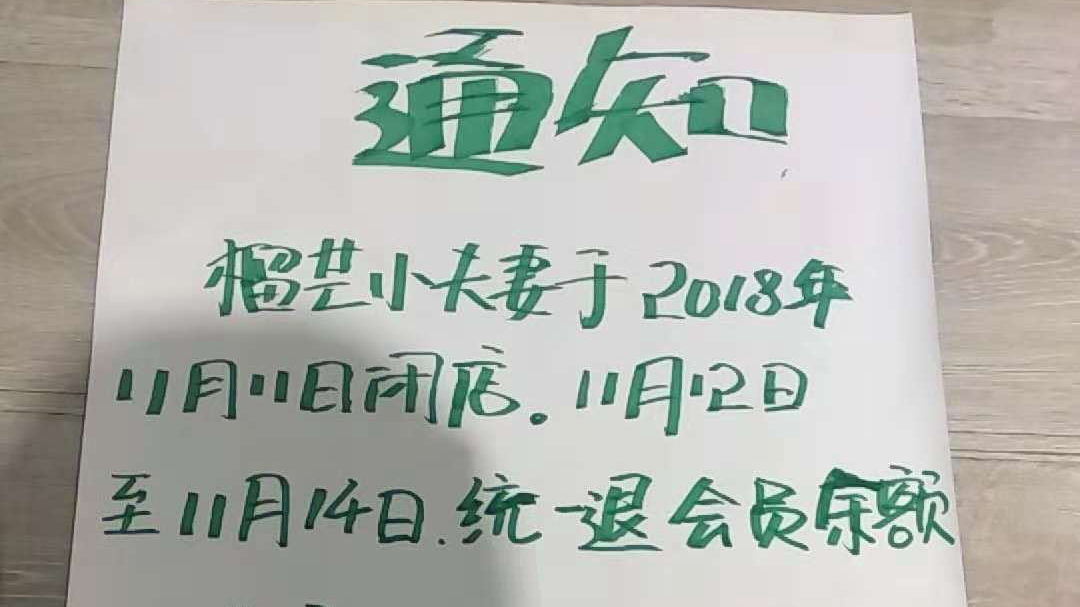 通知
榴芒小夫妻于2018年
11月11日闭店。11月12日
至11月14日.统一退会员余额